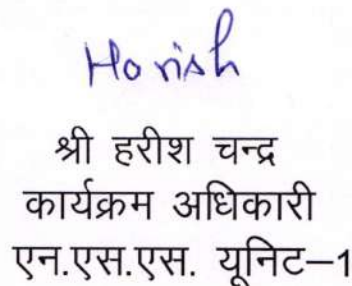 Horish
श्री हरीश चन्द्र
कार्यक्रम अधिकारी
एन.एस.एस. यूनिट–1